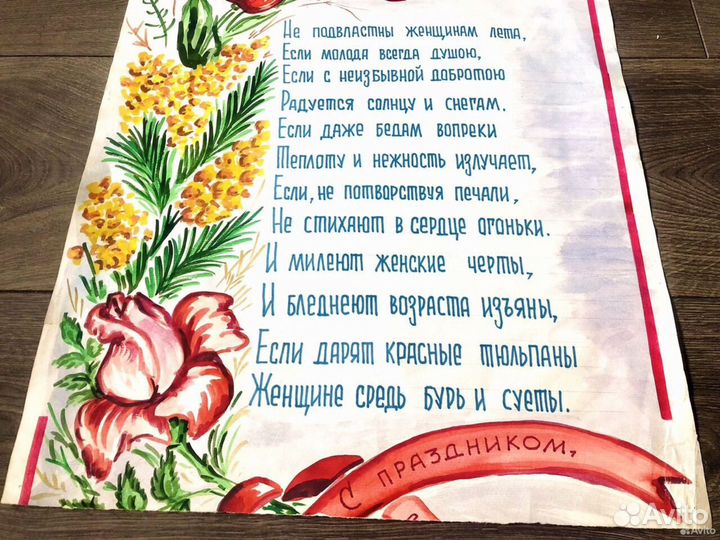 Не подвластны женщинам лета,
Если молода всегда душою,
Если с неизбывной добротою
Радуется солнцу и снегам.
Если даже бедам вопреки
Теплоту и нежность излучает,
Если, не потворствуя печали,
Не стихают в сердце огоньки.
И милеют женские черты,
И бледнеют возраста изъяны,
Если дарят красные тюльпаны
Женщине средь бурь и суеты.
С ПРАЗДНИКОМ,
Avito
Avito